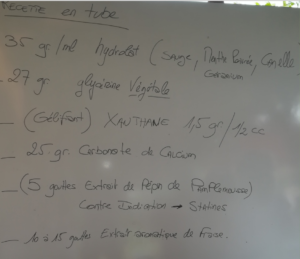 RECETTE en tube
35 gr/ml hydrolat (SAUGE, Menthe Poivrée, Canelle
Geranium
_ 27 gr. glycérine Végétale
_ (Gélifiant) XAUTHANE 1,5 gr/1/2 cc
_ 25 gr. Carbonate de CALCIUM
_ (5 gouttes Extrait de Pépin de Pamplemousse)
Contre Indication → Statines
_ 10 à 15 gouttes Extrait aromatique de Fraise.